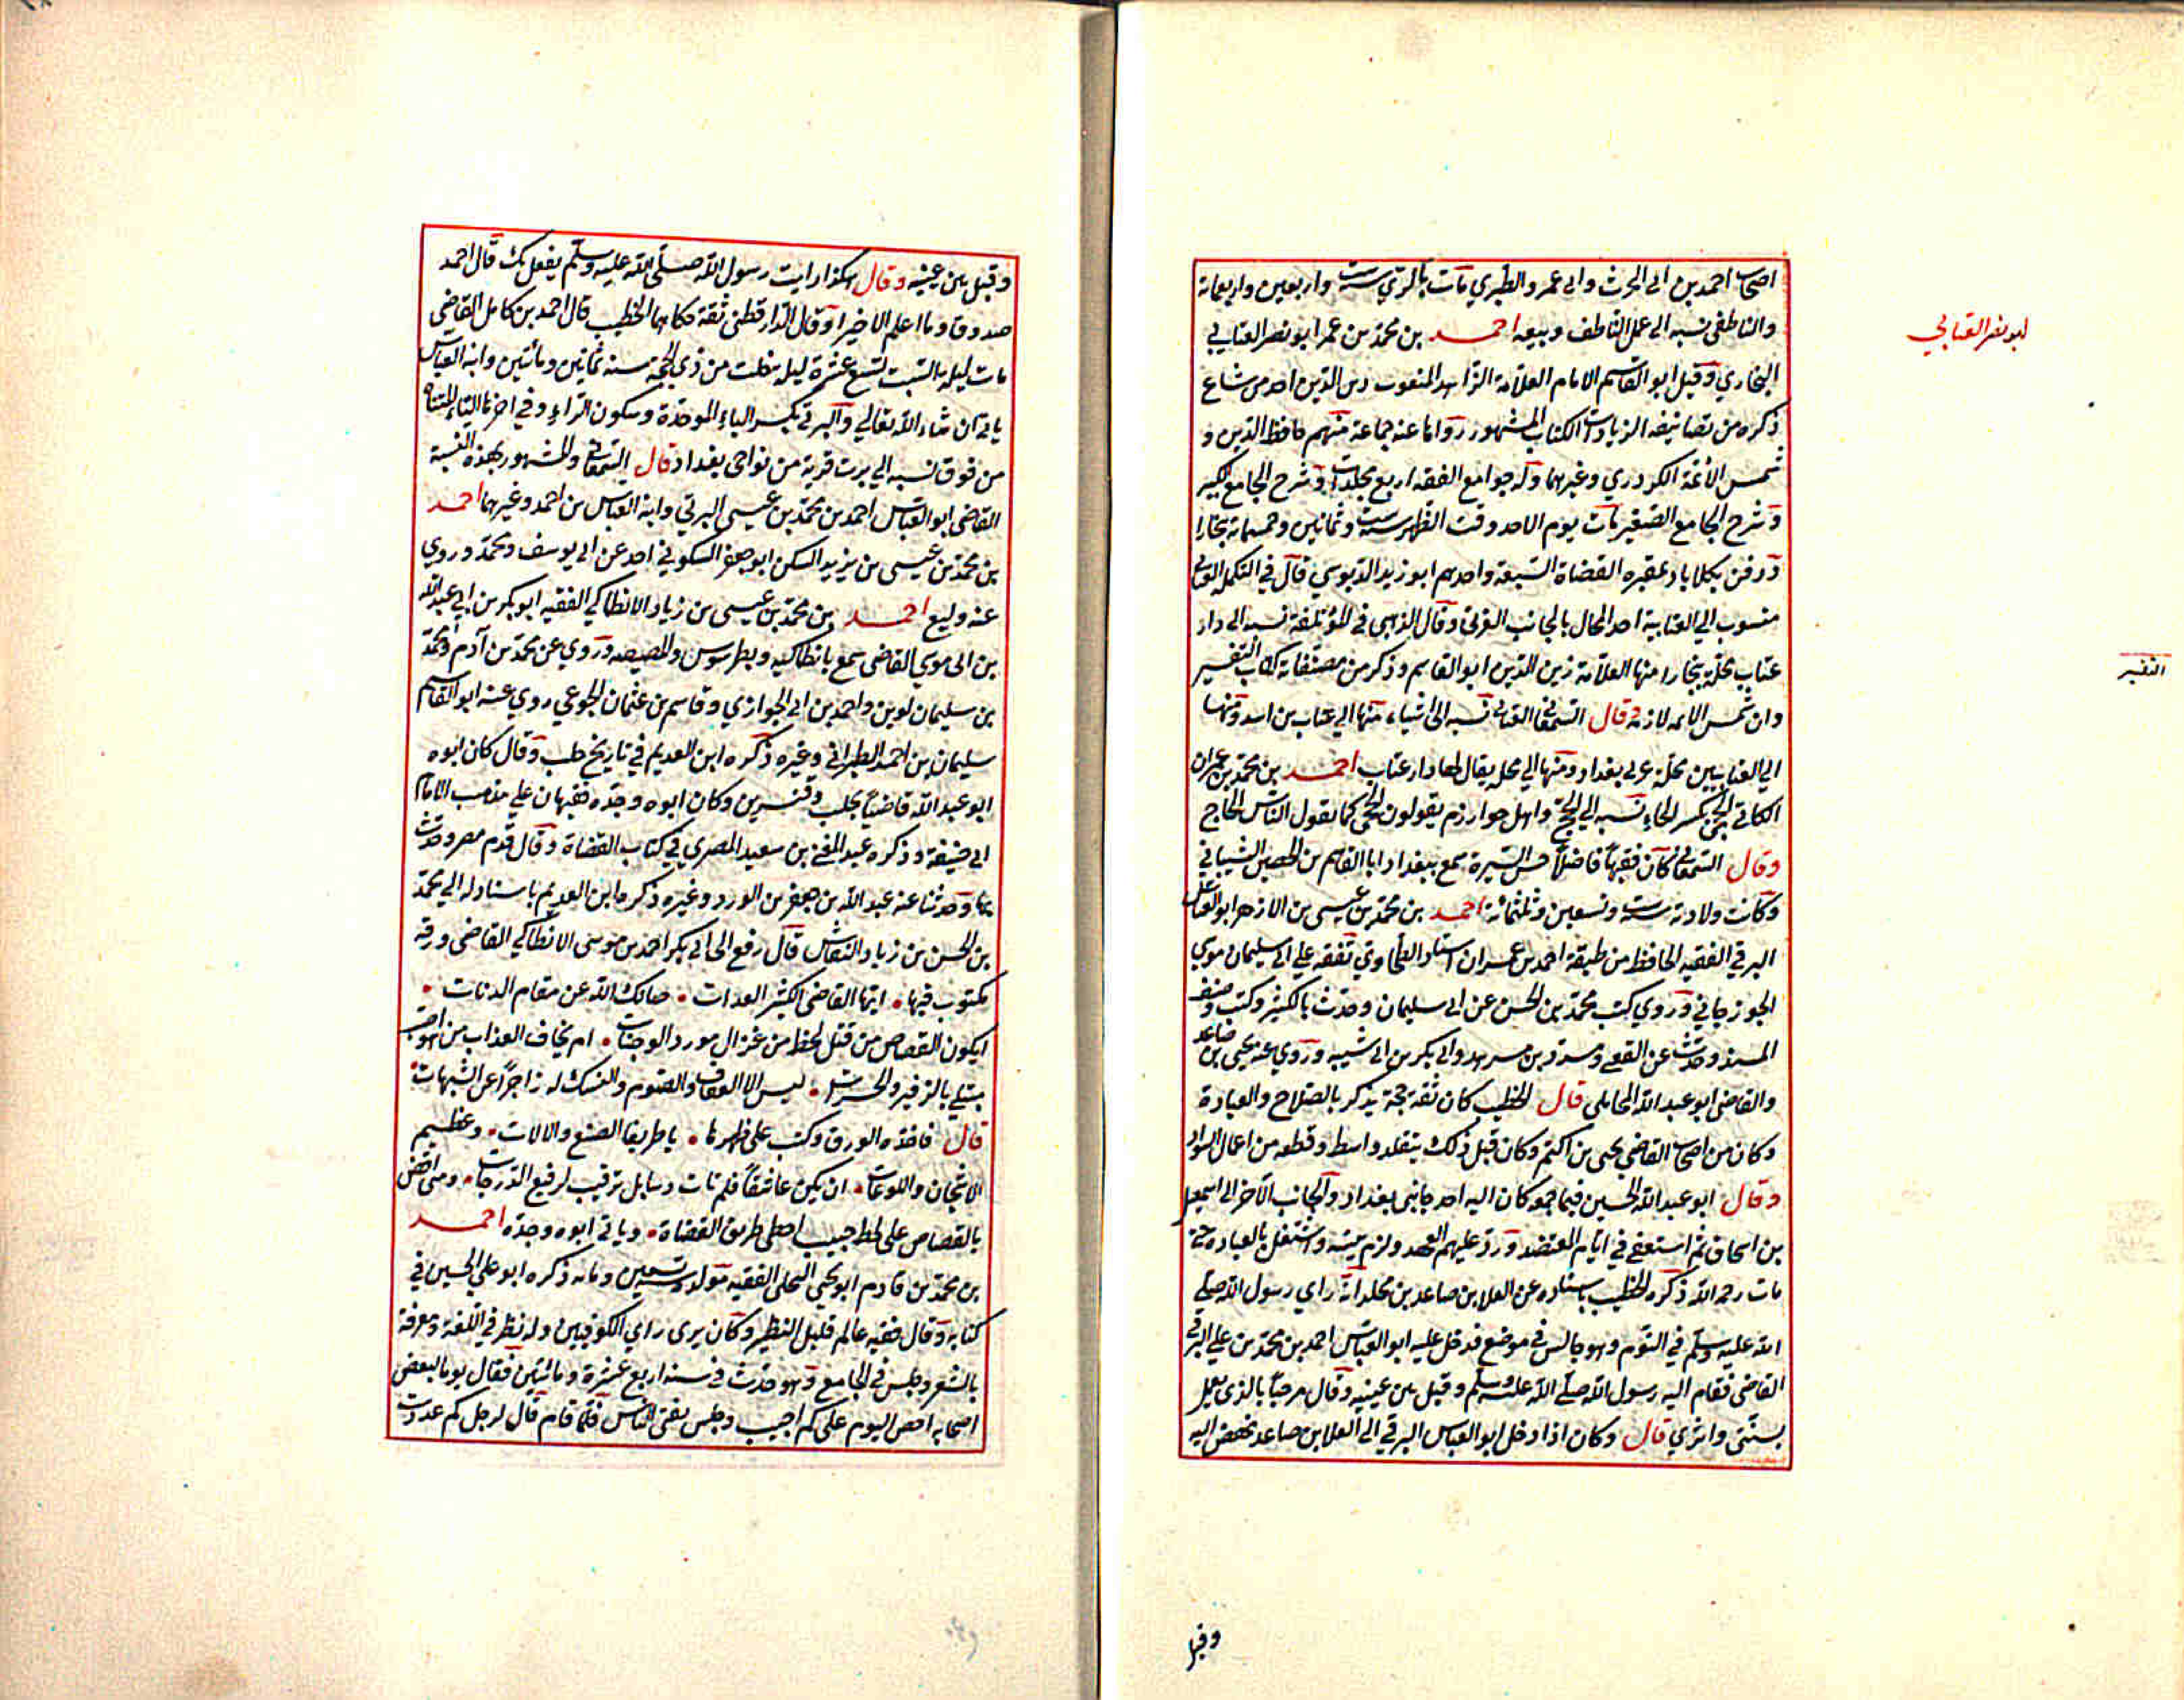 اصحاب احمد بن ابي الحرث وابي عمرو الطبري مات بالري سنة ست واربعين واربعمائة
والناطفي نسبه الى عمل الناطف وبيعه احمد بن محمد بن عمر ابو نصر العتابي
ابو نصر العتابي
البخاري وقيل ابو القاسم الامام العلامة الزاهد المنعوت زين الدين احد من شاع
ذكره من تصانيفه الزيادات الكتاب المشهور رواها عنه جماعة منهم حافظ الدين و
شمس الأئمة الكردري وغيرهما وله جوامع الفقه اربع مجلدات وشرح الجامع الكبير
وشرح الجامع الصغير مات يوم الاحد وقت الظهر سنة ست وثمانين وخمسمائة ببخارا
ودفن بكلاباد بمقبره القضاة السبعة واحدهم ابو زيد الدبوسي قال في التكمل العتابي
منسوب الي العتابية احد المحال بالجانب الغربي وقال الذهبي في المؤتلفة نسبه الى دار
عتاب محلة ببخارا منها العلامة زين الدين ابو القاسم وذكر من مصنفاته كتاب التفسير
التفسير
وان شمس الائمه لازمه وقال السمعاني العتابي نسبه الى اشياء منها الي عتاب بن اسد ومنها
الي العتابيين محلة غربي بغداد ومنها الي محله يقال لها دار عتاب احمد بن محمد بن عمران
الكاتي الحجي بكسر الحاء نسبه الي الحج واهل خوارزم يقولون الحجي كما يقول الناس الحاج
وقال السمعاني كان فقيها فاضلا حسن السيرة سمع ببغداد ابا القاسم بن الحصين الشيباني
وكانت ولادته سنة ست وتسعين وثلثمائة احمد بن محمد بن عيسى بن الازهر ابو العباس
البرتي الفقيه الحافظ من طبقة احمد بن عمران استاد الطحاوي تفقه علي ابي سليمان موسي
الجوزجاني وروي كتب محمد بن الحسن عن ابي سليمان وحدث بالكثير وكتب وصنف
المسند وحدث عن القعنبي ومسدد بن مسرهد وابي بكر بن ابي شيبه وروي عنه يحيى بن صاعد
والقاضي ابو عبد الله المحاملي قال الخطيب كان ثقة حجة يذكر بالصلاح والعبادة
وكان من اصحاب القاضي يحيى بن اكثم وكان قبل ذلك يتقلد واسط وقطعه من اعمال السواد
وقال ابو عبد الله الحسين فيما جمعه كان اليه احد جانبي بغداد والجانب الآخر الى اسمعيل
بن اسحاق ثم استعفي في ايام المعتضد ورد عليهم العهد ولزم بيته واشتغل بالعباده حتى
مات رحمه الله ذكره الخطيب باسناده عن العلا بن صاعد بن مخلد انه راي رسول الله صلى
الله عليه وسلم في النوم وهو جالس في موضع فدخل عليه ابو العباس احمد بن محمد بن علي البرتي
القاضي فقام اليه رسول الله صلى الله عليه وسلم وقبل بين عينيه وقال مرحبا بالذي يعمل
بسنتي واثري قال وكان اذا دخل ابو العباس البرتي الى العلا بن صاعد نهض اليه
وقبل
وقبل بين عينيه وقال هكذا رايت رسول الله صلى الله عليه وسلم يفعل بك قال احمد
صدوقا وما اعلم الا خيرا وقال الدارقطني ثقة حكاهما الخطيب قال احمد بن كامل القاضي
مات ليلة السبت لتسع عشرة ليله خلت من ذي الحجة سنه ثمانين ومائتين وابنه العباس
ياتي ان شاء الله تعالي والبرتي بكسر الباء الموحدة وسكون الراء وفي اخرها التاء المثناه
من فوق نسبه الي برت قرية من نواحي بغداد قال السمعاني والمشهور بهذه النسبة
القاضي ابو العباس احمد بن محمد بن عيسى البرتي وابنه العباس بن احمد وغيرهما احمد
بن محمد بن عيسى بن يزيد السكن ابو جعفر السكوني اخذ عن ابي يوسف ومحمد وروي
عنه وكيع احمد بن محمد بن عيسى بن زياد الانطاكي الفقيه ابو بكر بن ابي عبد الله
بن ابي موسي القاضي سمع بانطاكيه وبطرسوس والمصيصه وروي عن محمد بن آدم ومحمد
بن سليمان لوين واحمد بن ابي الحواري وقاسم بن عثمان الجوعي روي عنه ابو القاسم
سليمان بن احمد الطبراني وغيره ذكره ابن العديم في تاريخ حلب وقال كان ابوه
ابو عبد الله قاضيا بحلب وقنسرين وكان ابوه وجده فقيهان علي مذهب الامام
ابي حنيفة وذكره عبد الغني بن سعيد المصري في كتاب القضاة وقال قدم مصر وحدث
بها وحدثنا عنه عبد الله بن جعفر بن الورد وغيره ذكره ابن العديم باسناد له الي محمد
بن الحسن بن زياد النقاش قال رفع الى ابي بكر احمد بن موسى الانطاكي القاضي ورقه
مكتوب فيها • ايها القاضي الكثير العدات • صانك الله عن مقام الدنات •
ايكون القصاص من قتل لحظ من غزال مورد الوجنات • ام يخاف العذاب من هو صب
مبتلي بالزفير والحسرات • ليس الا العفاف والصوم والنسك له زاجرا عن الشبهات •
قال فاخذه الورق وكتب علي ظهرها • يا ظريفا الصنع والالات • وعظيم
الاشجان واللوعات • ان يكن عاشقا فلم تات دسايل ترقيب لرفيع الدرجات • ومتى اقض
بالقصاص على لحظ حبيب اخطي طريق القضاة • وياتي ابوه وجده احمد
بن محمد بن قادم ابو يحيى النحلي الفقيه مولده سنه سبعين ومائه ذكره ابو علي الحسين في
كتابه وقال فقيه عالم قليل النظير وكان يرى راي الكوفيين وله نظر في اللغة ومعرفة
بالشعر وجلس في الجامع وهو حدث في سنة اربع عشرة ومائتين فقال يوما لبعض
اصحابه احص اليوم على كم اجيب وجلس يفتي الناس فلما قام قال لرجل كم عددت